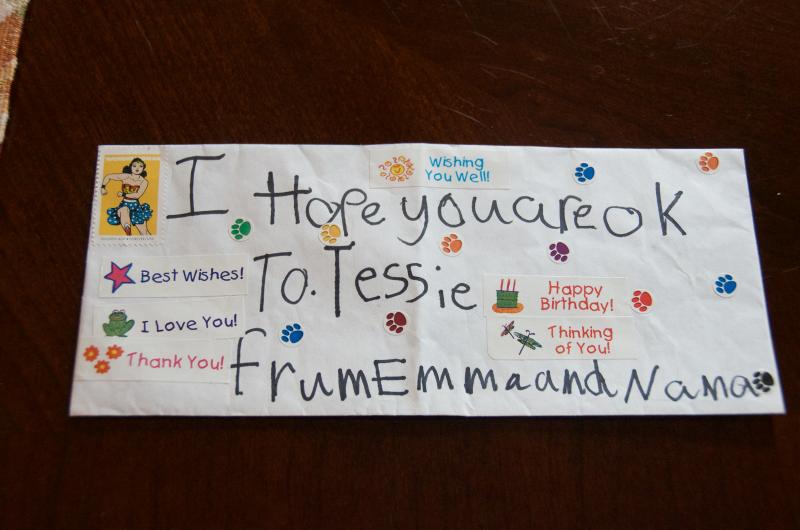 Wishing
You Well!
I Hope you are ok
Best Wishes!
To. Tessie
Happy
Birthday!
I Love You!
Thinking
of You!
Thank You!
frum Emma and Nana